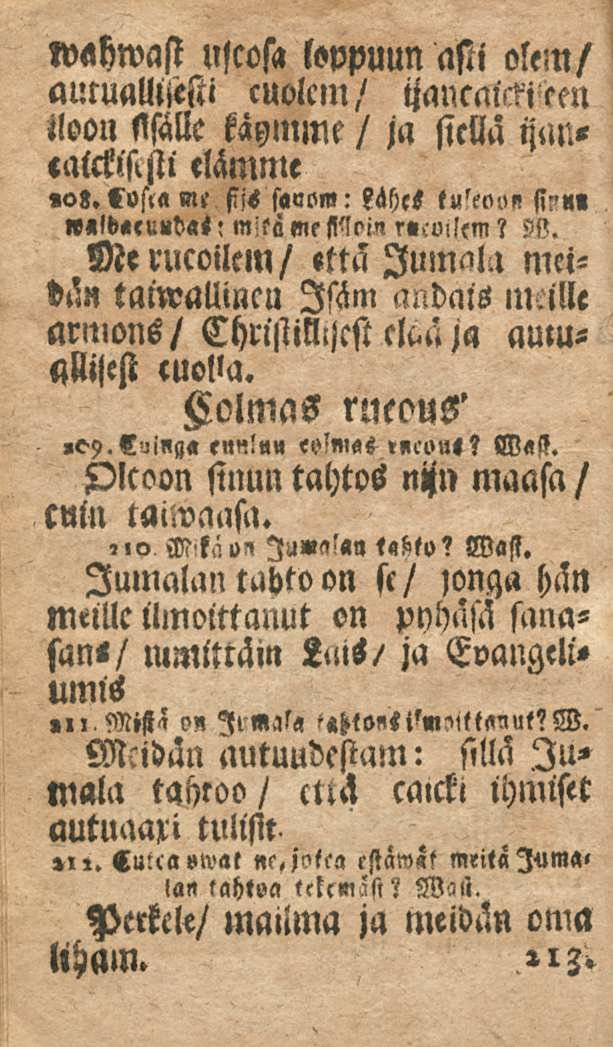 wahwast uscosa loppuun asti olem/
autuallisesti cuolem/ ijancaickiseen
iloon sisälle käymme / ja siellä ijan=
caickisesti elämme
208. Cosca me siis sanom: Lähes tulcoon sinun
waldacundas: mitä me silloin rucoilem? W.
Me rucoilem/ että Jumala mei=
dän taiwallinen Isäm andais meille
armons/ Christillisest elää ja autu=
allisest cuolla.
Colmas rucous
209. Cuinga cuuluu colmas rucous? Wast.
Olcoon sinun tahtos nijn maasa/
cuin taiwaasa.
210. Mikä on Jumalan tahto? Wast.
Jumalan tahto on se/ jonga hän
meille ilmoittanut on pyhäsä sana=
sans/ nimittäin Lais/ ja Evangeli=
umis
211. Mistä on Jumala tahtons ilmoittanut? W.
Meidän autuudestam: sillä Ju=
mala tahtoo/ että caicki ihmiset
autuaaxi tulisit.
212. Cutca owat ne, jotca estäwät meitä Juma=
lan tahtoa tekemäst? Wast.
Perkele/ mailma ja meidän oma
liham.
213.